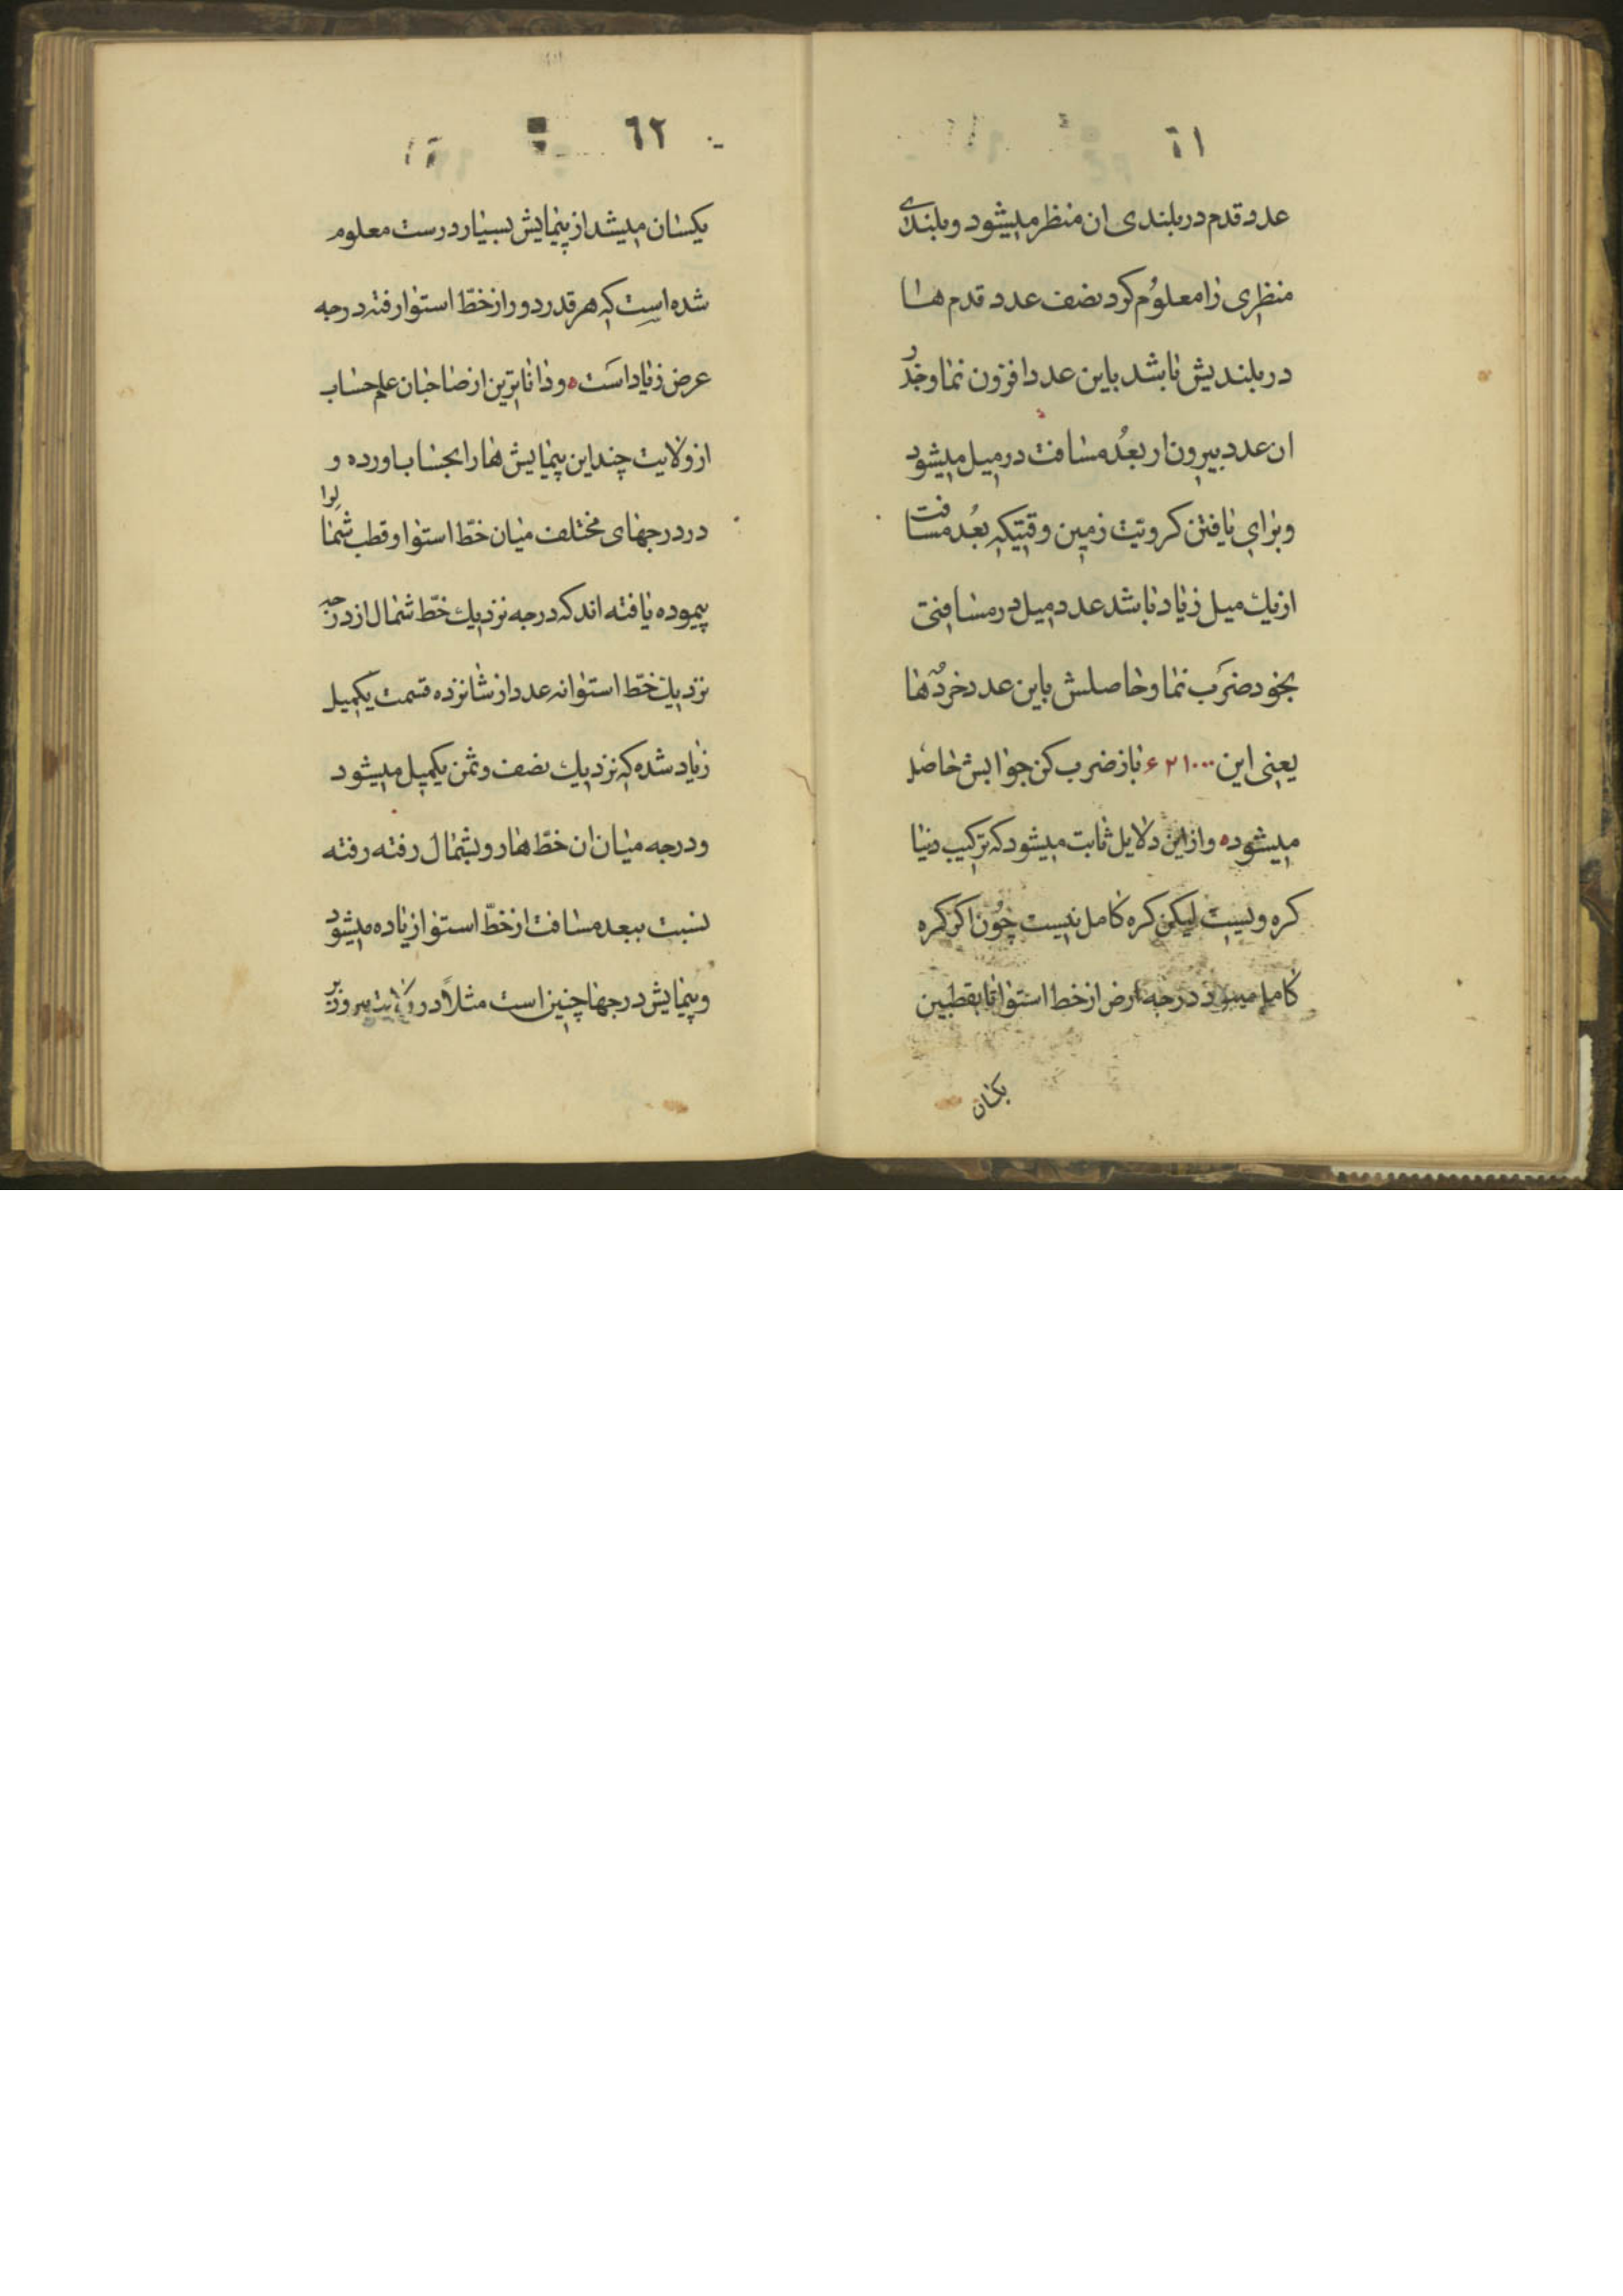 ٦١
عدد قدم در بلندی ان منظر میشود و بلندی
منظری را معلوم کرد نصف عدد قدم ها
در بلندیش باشد باین عدد افزون نما و جذر
ان عدد بیرون ار بعد مسافت در میل میشود
و برای یافتن کرویت زمین وقتیکه بعد مسافت
از یک میل زیاد باشد عدد میل در مسافتی
بخود ضرب نما و حاصلش باین عدد خرده ها
یعنی این باز ضرب کن جوابش حاصل
میشود ه و از این دلایل ثابت میشود که ترکیب دنیا
کره ویست لیکن کره کامل نیست چون اکر کره
کامل میبود درجه ارض از خط استوا تا بقطبین
یکسان
٦٢
یکسان میشد از پیمایش بسیار درست معلوم
شده است که هر قدر دور از خط استوا رفته درجه
عرض زیاد است ه و داناترین از صاحبان علم حساب
از ولایت چند این پیمایش ها را بحساب اورده و
در درجهای مختلف میان خط استوا و قطب شمال را
پیموده یافته اند که درجه نزدیک خط شمال از درجه
نزدیک خط استوا نه عدد از شانزده قسمت یکمیل
زیاد شده که نزدیک نصف و ثمن یکمیل میشود
و درجه میان ان خط ها رو بشمال رفته رفته
نسبت ببعد مسافت از خط استوا زیاده میشود
و پیمایش درجها چنین است مثلاً در ولایت